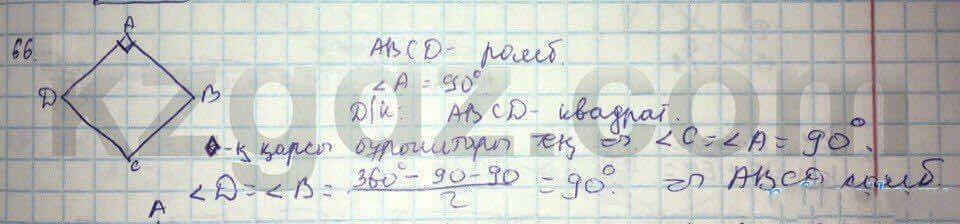 66.
A
D
B
C
ABCD - ромб.
∠A = 90°
D/к: ABCD - квадрат.
◆-ң қарсы бұрыштары тең ⇒ ∠C = ∠A = 90°.
∠D = ∠B = (360° - 90 - 90)/2 = 90°. ⇒ ABCD ромб
A